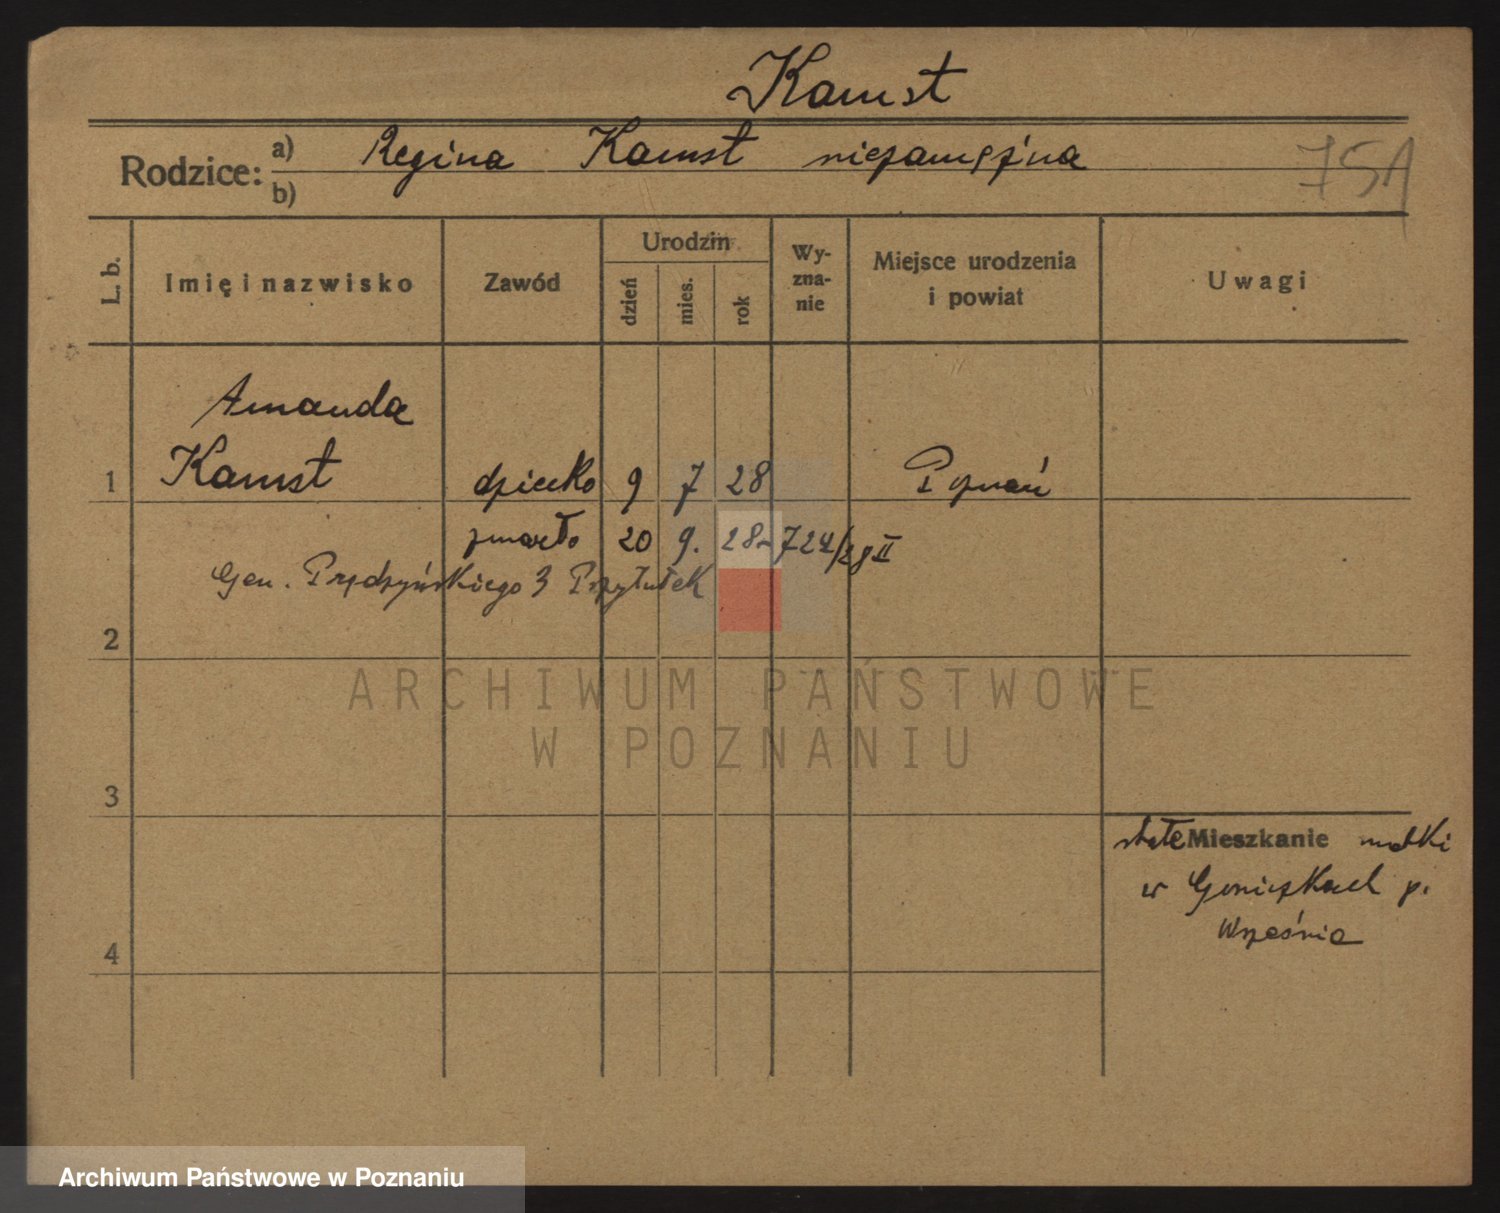 Kamst
Rodzice: a) Regina Kamst niezamężna
b)
751
L. b. Imię i nazwisko Zawód Urodzin dzień mies. rok Wy-zna-nie Miejsce urodzenia i powiat Uwagi
Amanda
1 Kamst dziecko 9 7 28 Poznań
zmarło 20 9. 28 - 724/28 II
Gen. Prądzyńskiego 3 Przytułek
2
ARCHIWUM PAŃSTWOWE
W POZNANIU
3
stałe Mieszkanie matki
w Goniczkach p.
Września
4
Archiwum Państwowe w Poznaniu